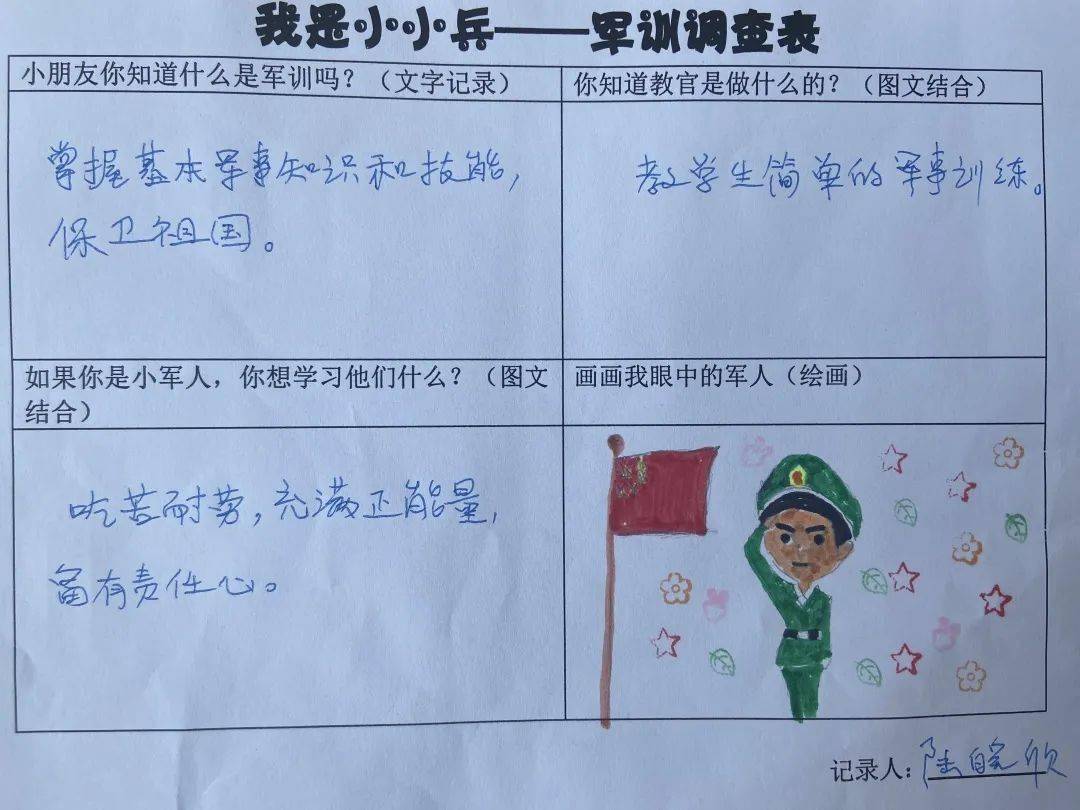 我是小小兵——军训调查表
小朋友你知道什么是军训吗？（文字记录）
你知道教官是做什么的？（图文结合）
掌握基本军事知识和技能，
保卫祖国。
教学生简单的军事训练。
如果你是小军人，你想学习他们什么？（图文
结合）
画画我眼中的军人（绘画）
吃苦耐劳，充满正能量，
富有责任心。
记录人：陆皖欣